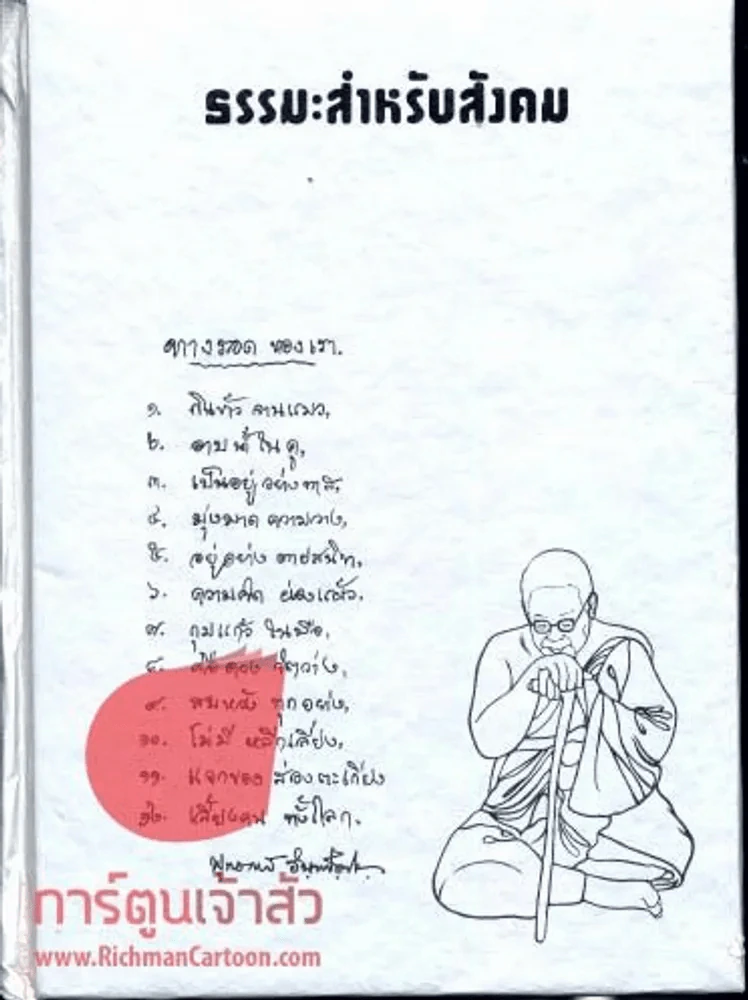 ธรรมะสำหรับสังคม
ทางรอด ของเรา.
๑. กินข้าว จานแมว,
๒. อาบน้ำ ในคู,
๓. เป็นอยู่ อย่างทาส,
๔. มุ่งมาด ความว่าง,
๕. อยู่อย่าง
๖. ความคิด
๗. กุมแก้ว ในมือ,
๘.
๙. สมหวัง ทุกอย่าง,
๑๐. ไม่มี หลีกเลี่ยง,
๑๑. แจกของ ส่องตะเกียง
๑๒. เลี้ยงคน ทั้งโลก.
พุทธทาส อินทปัญโญ
การ์ตูนเจ้าสัว
www.RichmanCartoon.com